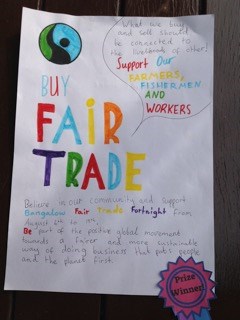 What we buy
and sell should
be connected to
the livelihoods of others!
Support Our
FARMERS,
FISHERMEN
AND
WORKERS
BUY
FAIR
TRADE
Believe in our community and support
Bangalow Fair Trade Fortnight from
August
Be part of the positive global movement
towards a fairer and more sustainable
way of doing business that puts people
and the planet first.
Prize
Winner